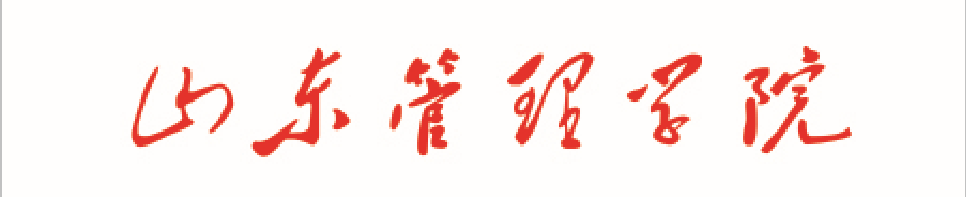 山东管理学院